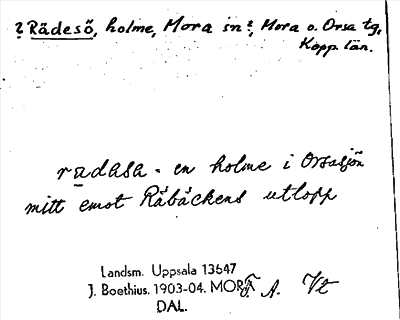 ? Rädesö, holme, Mora sn?, Mora o. Orsa tg,
Kopp. län.
radasa - en holme i Orsasjön
mitt emot Råbäckens utlopp
Landsm. Uppsala 13647
J. Boethius. 1903-04. MORA
A. Vt
DAL.